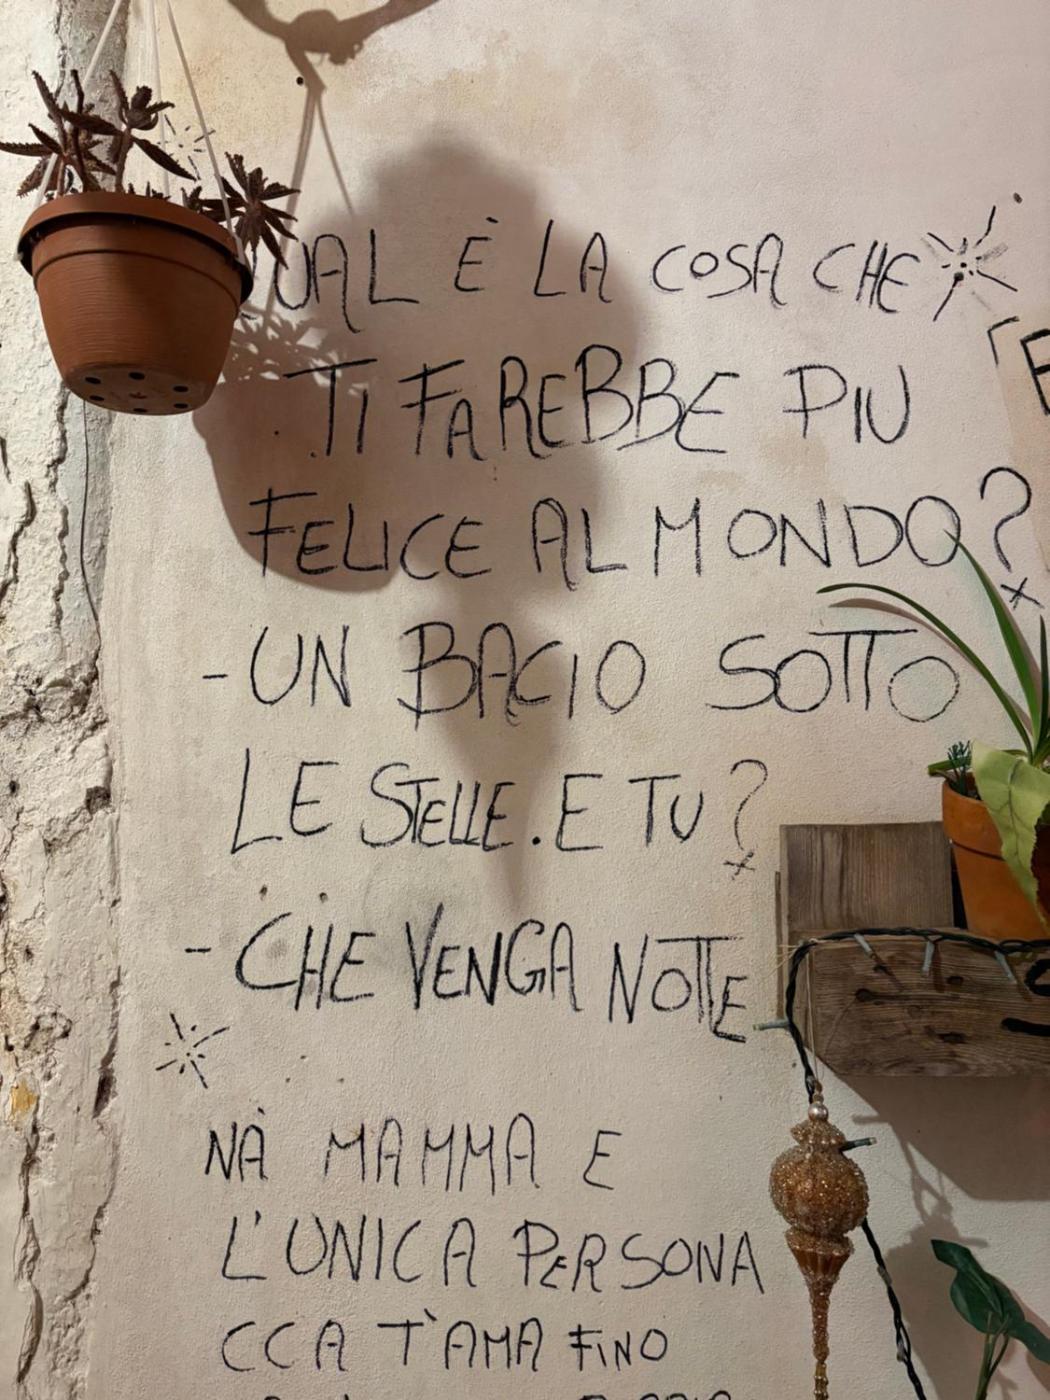 QUAL È LA COSA CHE
TI FAREBBE PIU
FELICE AL MONDO?
-UN BACIO SOTTO
LE STELLE. E TU?
- CHE VENGA NOTTE
NÀ MAMMA E
L'UNICA PERSONA
CCA T'AMA FINO